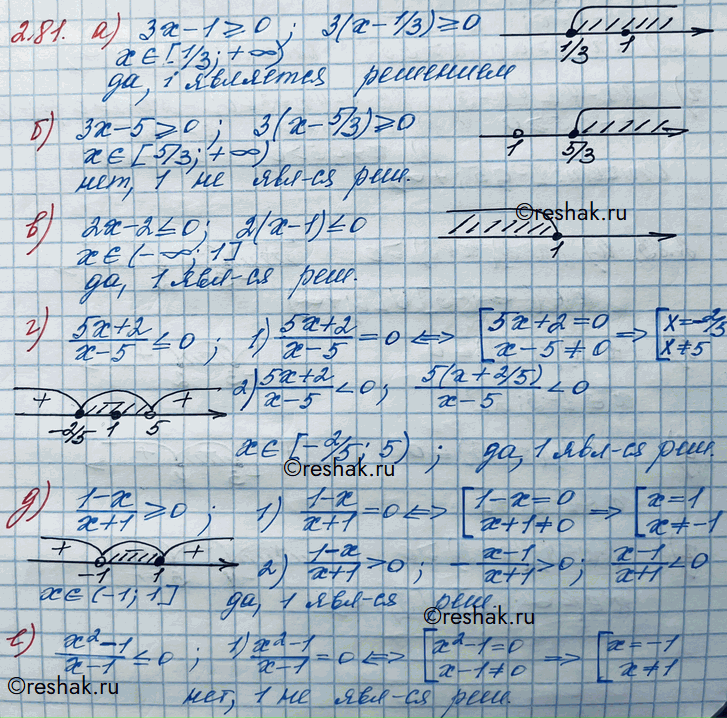 2.81. а) 3x-1≥0; 3(x-1/3)≥0
1/3 1
x∈[1/3;+∞)
да, 1 является решением
б) 3x-5≥0; 3(x-5/3)≥0
1 5/3
x∈[5/3;+∞)
нет, 1 не явл-ся реш.
©reshak.ru
в) 2x-2≤0; 2(x-1)≤0
1
x∈(-∞;1]
да, 1 явл-ся реш.
г) (5x+2)/(x-5)≤0; 1) (5x+2)/(x-5)=0 ⇔ [5x+2=0 ⇒ [x=-2/5
x-5≠0 x≠5
2) (5x+2)/(x-5)<0; 5(x+2/5)/(x-5)<0
+ +
-2/5 1 5
x∈[-2/5;5); да, 1 явл-ся реш.
©reshak.ru
д) (1-x)/(x+1)≥0; 1) (1-x)/(x+1)=0 ⇔ [1-x=0 ⇒ [x=1
x+1≠0 x≠-1
+ +
-1 1
2) (1-x)/(x+1)>0; -(x-1)/(x+1)>0; (x-1)/(x+1)<0
x∈(-1;1] да, 1 явл-ся реш.
©reshak.ru
е) (x²-1)/(x-1)≤0; 1) (x²-1)/(x-1)=0 ⇔ [x²-1=0 ⇒ [x=-1
x-1≠0 x≠1
©reshak.ru
нет, 1 не явл-ся реш.